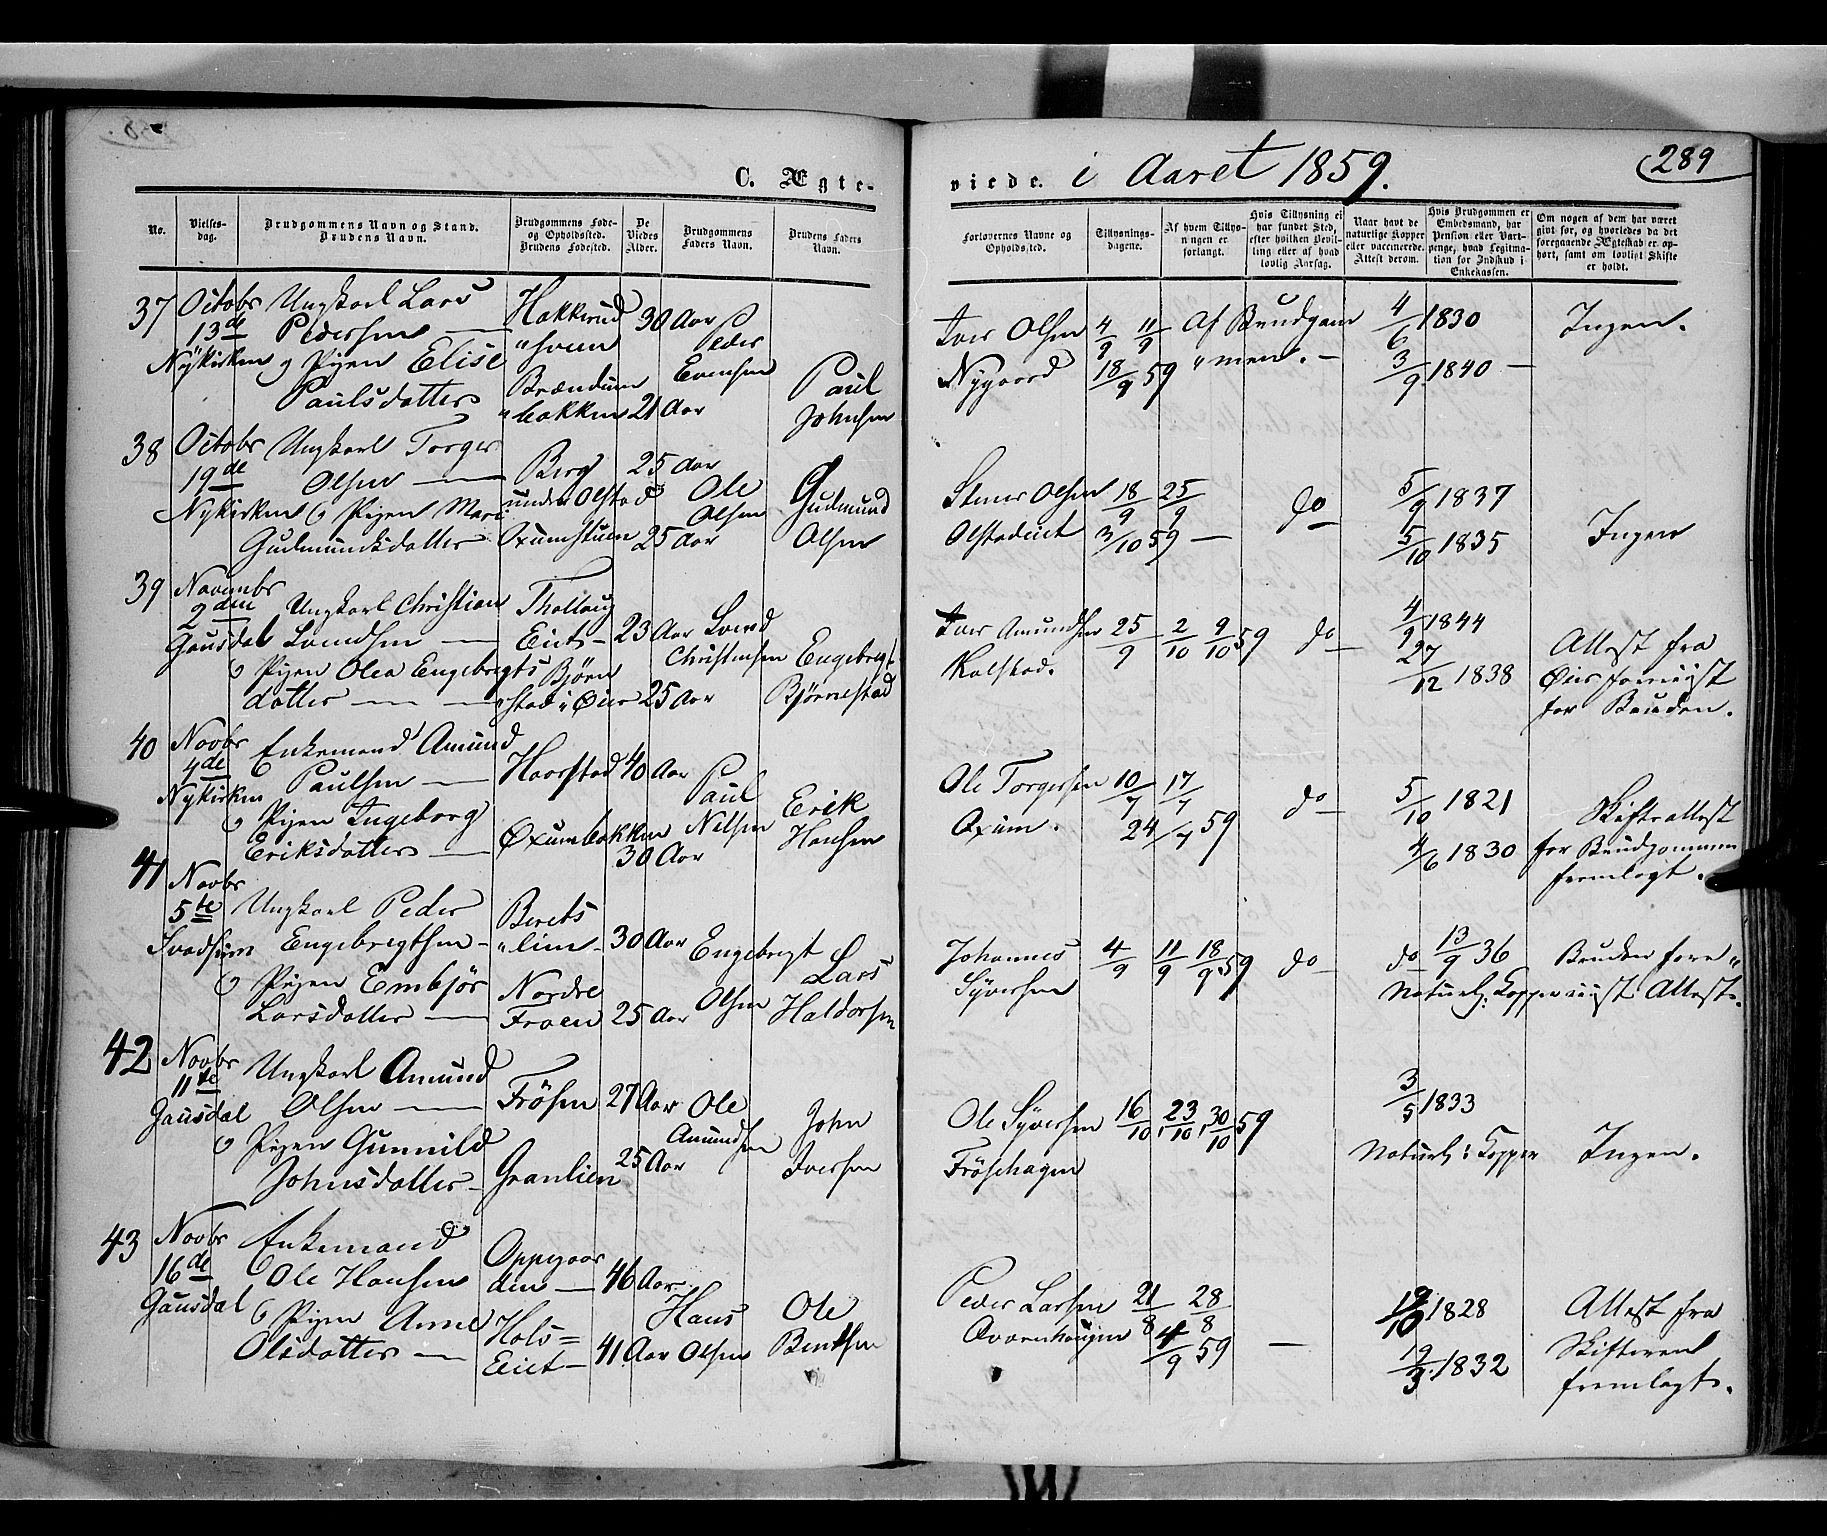 C. Ægte-
viede. i Aaret 1859.
289
No.
Vielses-
dag.
Brudgommens Navn og Stand.
Brudens Navn.
Brudgommens Føde-
og Opholdsted.
Brudens Fødested.
De
Viedes
Alder.
Brudgommens
Faders Navn.
Brudens Faders
Navn.
Forlovernes Navne og
Opholdsted.
Tillysnings-
dagene.
Af hvem Tillys-
ningen er
forlangt.
Hvis Tillysning ei
har fundet Sted,
efter hvilken Bevil-
ling eller af hvad
lovlig Aarsag.
Naar havt de
naturlige Kopper
eller vaccinerede.
Attest derom.
Hvis Brudgommen er
Embedsmand, har
Pension eller Vart-
penge, hvad Legitima-
tion for Indskud i
Enkekassen.
Om nogen af dem har været
gift før, og hvorledes da det
foregaaende Ægteskab er op-
hørt, samt om lovligt Skifte
er holdt.
37
Octobr
13de
Nÿkirken
Ungkarl Lars
Pedersen
og Pigen Elise
Paulsdatter
Hakkerud
"sveen
Brændum
"bakken
30 Aar
21 Aar
Peder
Evensen
Paul
Johnsen
Iver Olsen
Nygaard
4/9 11/9
18/9 59
Af Brudgom
"men.
4/6 1830
3/9 1840
Ingen.
38
Octobr
19de
Nykirken
Ungkarl Torger
Olsen
og Pigen Mari
Gudmundsdatter
Berg
under Olstad
Oxumstuen
25 Aar
25 Aar
Ole
Olsen
Gudmund
Olsen
Stener Olsen
Olstadeiet
18/9 25/9
3/10 59
do
5/9 1837
5/10 1835
Ingen
39
Novembr
2den
Gausdal
Ungkarl Christian
Lamdsen
og Pigen Olea Engebregts
datter
Thollaug
Eiet
Bjørn
"stad i Øier
23 Aar
25 Aar
Christensen
Engebregt
Bjørnestad
Iver Amundsen
Kalstad.
25/9 2/10 9/10 59
do
4/9 1844
27/12 1838
Attest fra
Øier foreviist
for Bruden.
40
Novbr
4de
Nykirken
Enkemand Amund
Paulsen
og Pigen Ingeborg
Eriksdatter
Haarstad
Oxumbakken
40 Aar
30 Aar
Paul
Nilsen
Erik
Hansen
Ole Torgersen
Oxum.
10/7 17/7
24/7 59
do
5/10 1821
4/6 1830
Skifteattest
for Brudgommen
fremlagt.
41
Novbr
5te
Svadsum
Ungkarl Peder
Engebregtsen
og Pigen Embjør
Larsdatter
Berets
"lien
Nordre
Froen
30 Aar
25 Aar
Engebregt
Olsen
Lars
Haldorsen
Johannes
Syversen
4/9 11/9 18/9 59
do
do 13/9 36
Naturl: Kopper viist Attest.
Bruden fore"
42
Novbr
11te
Gausdal
Ungkarl Amund
Olsen
og Pigen Gunnild
Johnsdatter
Frösen
Granlien
27 Aar
25 Aar
Ole
Amundsen
John
Iversen
Ole Syversen
Fröschagen
16/10, 23/10, 30/10 59
3/5 1833
Naturl: Kopper
Ingen.
43
Novbr
16de
Gausdal
Enkemand
Ole Hansen
og Pigen Anne
Olsdatter
Oppegaar
den
Hols=
Eiet
46 Aar
41 Aar
Hans
Olsen
Ole
Bentsen
Peder Larsen
21/8 28/8
4/9 59
1828
19/3 1832
Attest fra
Skifteret
fremlagt.